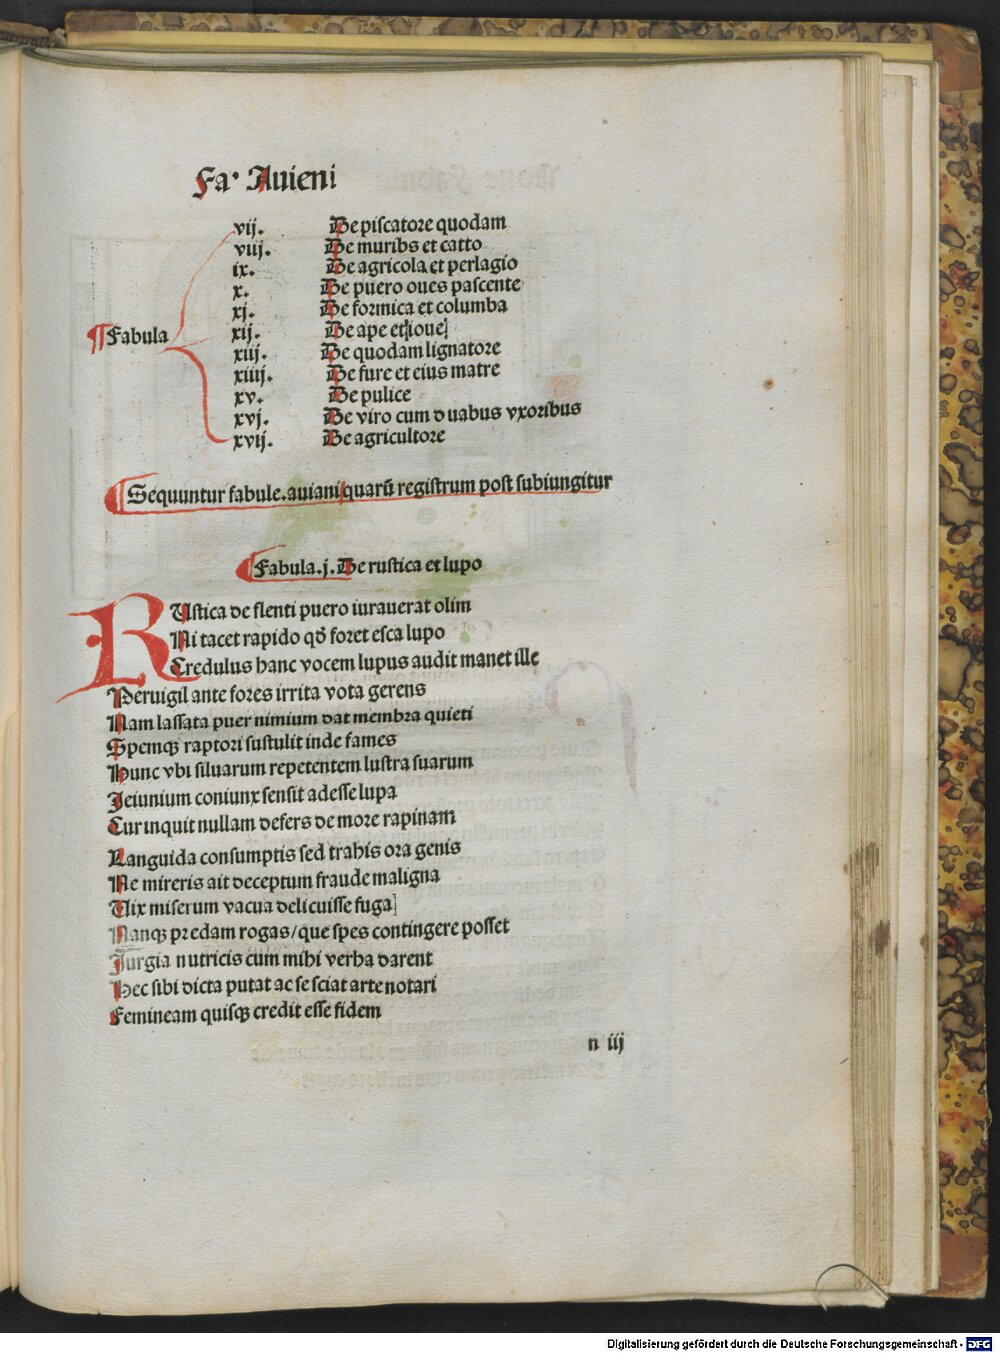 Fa· Auieni
vij. De piscatore quodam
viij. De muribs et catto
ix. De agricola et perlagio
x. De puero oues pascente
¶Fabula
xj. De formica et columba
xij. De ape et ioue
xiij. De quodam lignatore
xiiij. De fure et eius matre
xv. De pulice
xvj. De viro cum duabus vxoribus
xvij. De agricultore
Sequuntur fabule.auiani quarū registrum post subiungitur
Fabula.j. De rustica et lupo
RUstica deflenti puero iurauerat olim
Ni tacet rapido qď foret esca lupo
Credulus hanc vocem lupus audit manet ille
Peruigil ante fores irrita vota gerens
Nam lassata puer nimium dat membra quieti
Spemqꝫ raptori sustulit inde fames
Hunc vbi siluarum repetentem lustra suarum
Jeiunium coniunx sensit adesse lupa
Cur inquit nullam defers de more rapinam
Languida consumptis sed trahis ora genis
Ne mireris ait deceptum fraude maligna
Uix miserum vacua delicuisse fuga
Nanqꝫ predam rogas/que spes contingere posset
Jurgia nutricis cum mihi verba darent
Hec sibi dicta putat ac se sciat arte notari
Femineam quisqꝫ credit esse fidem
n iij
Digitalisierung gefördert durch die Deutsche Forschungsgemeinschaft - DFG